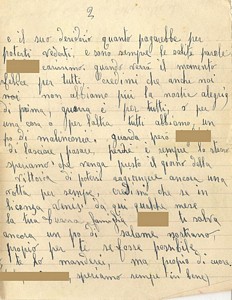 2
e il suo desiderio quanto pagherebbe per
poterti vederti, e sono sempre le solite parole
carissimo, quando verrà il momento
bello per tutti, credimi che anche noi
non abbiamo più la nostra alegria
di prima, guerra è per tutti, o per
una cosa o per l'altra tutti abbiamo, un
po di malinconia, guarda però
di lasciar passare, perchè è sempre lo stesso
speriamo che venga presto il giorno della
vittoria di poterci
volta per sempre, credimi che se in
licenza, avessi da qui
la tua famiglia
ancora un po di salame nostrano
proprio per te se fosse possibile
te lo manderei, ma proprio di cuore
speriamo sempre in bene,